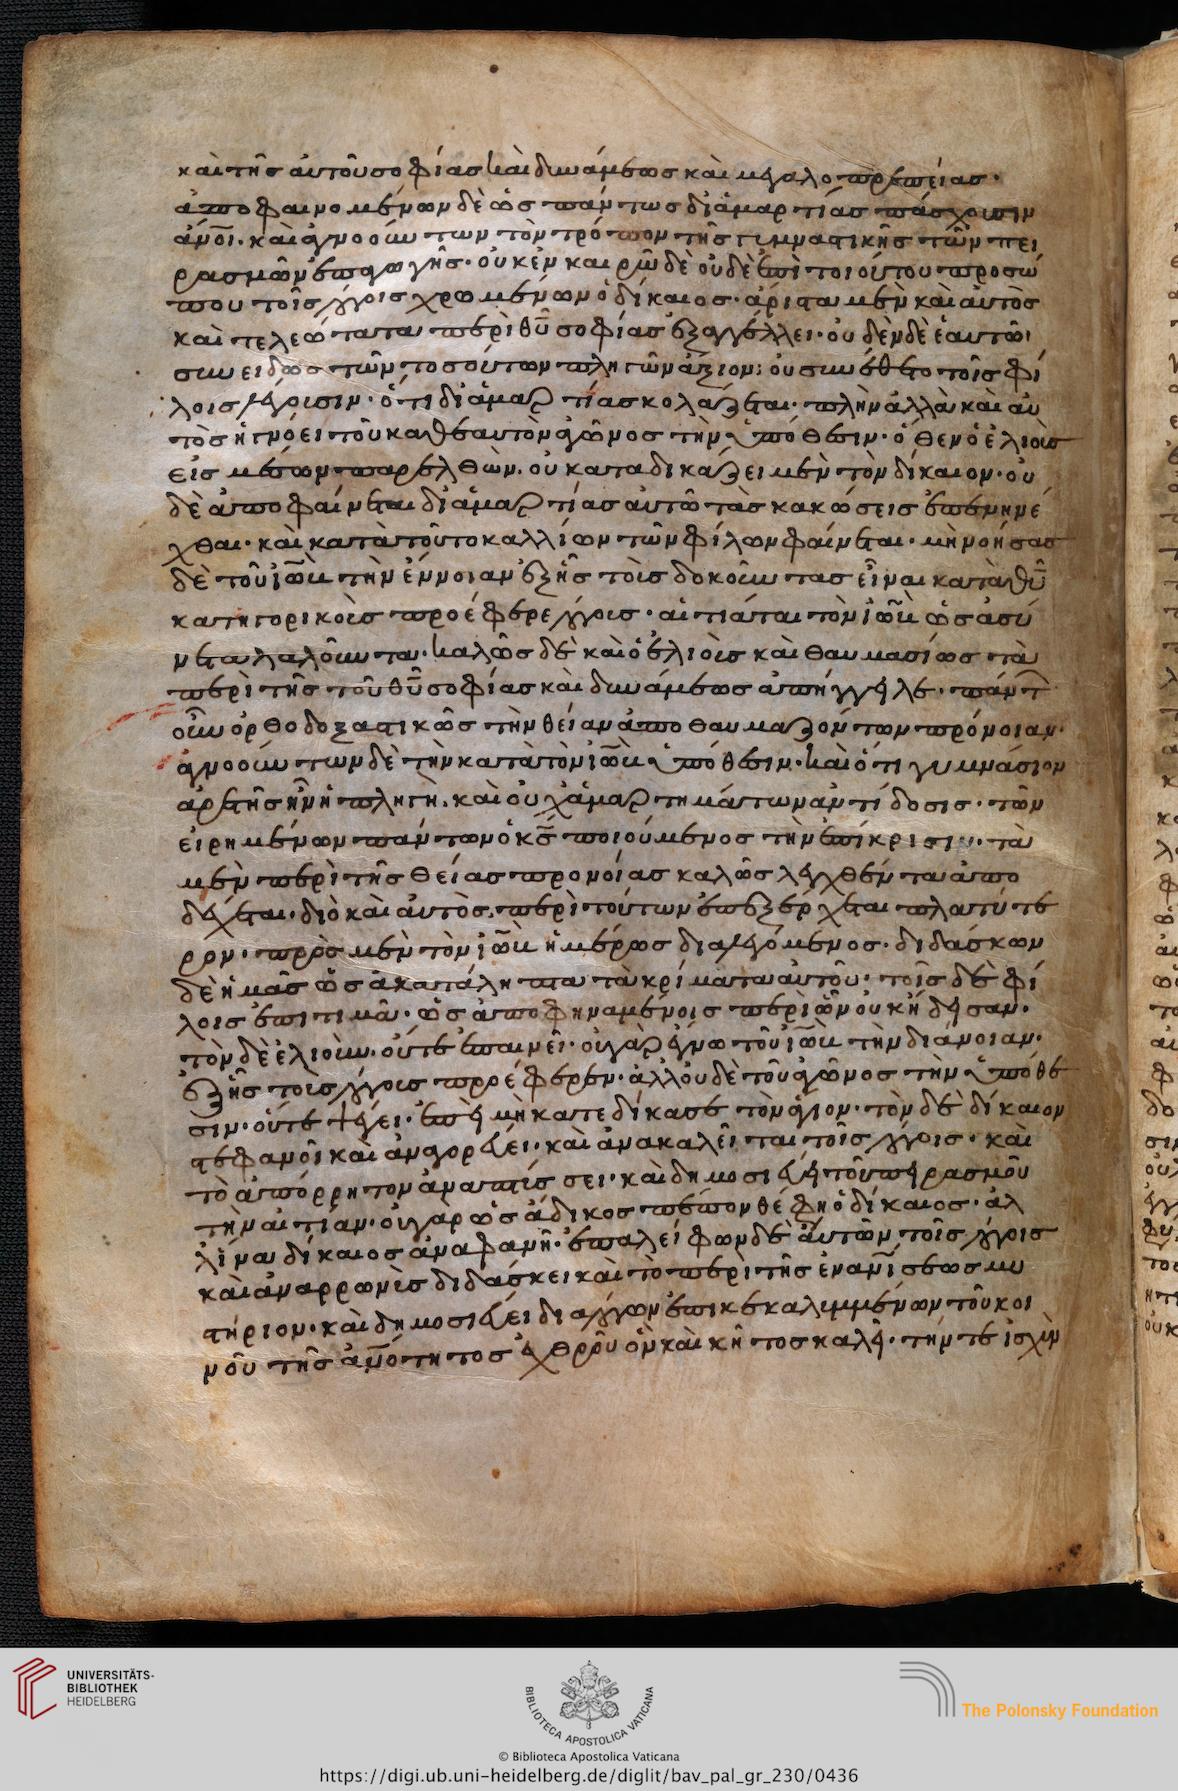 καὶ τῆς αὐτοῦ σοφίας καὶ δυνάμεως καὶ μεγαλοπρεπείας·
ἀποφαινομένων δὲ ὡς πάντως δι' ἁμαρτίας πάσχουσιν
ἄνοι. καὶ ἀγνοούντων τὸν τρόπον τῆς γυμναστικῆς τῶν πει
ρασμῶν ἐπαγωγῆς. οὐκ ἐν καιρῶ δὲ οὐδὲ ἐπὶ τοιούτου προσώ
που τοῖς λόγοις χρωμένων ὁ δίκαιος. ἄριστα μὲν καὶ αὐτὸς
καὶ τελεώτατα περὶ θυ σοφίας ἐξαγγέλλει· οὐδὲν δὲ ἑαυτῶ
συνειδὼς τῶν τοσούτων πληγῶν ἄξιον· οὐ συνέθετο τοῖς φί
λοις λέγουσιν. ὅτι δι' ἁμαρτίας κολάζεται. πλὴν ἀλλὰ καὶ αὐ
τὸς ἠγνόει τοῦ καθ' ἑαυτὸν ἀγῶνος τὴν ὑπόθεσιν. ὅθεν ὁ ἐλιοὺς
εἰς μέσων παρελθὼν. οὐ καταδικάζει μὲν τὸν δίκαιον. οὐ
δὲ ἀποφαίνεται δι' ἁμαρτίας αὐτῶ τὰς κακώσεις ἐπενηνέ
χθαι. καὶ κατὰ τοῦτο καλλίων τῶν φίλων φαίνεται. μὴ νοήσας
δὲ τοῦ ἰὼβ τὴν ἔννοιαν ἐξ ἧς τοὺς δοκοῦντας εἶναι κατὰ θυ
κατηγορικοὺς προέφερε λόγους. αἰτιᾶται τὸν ἰὼβ ὡς ἀσύ
νετα λαλοῦντα. καλῶς δὲ καὶ ὁ ἐλιοὺς καὶ θαυμασίως τὰ
περὶ τῆς τοῦ θυ σοφίας καὶ δυνάμεως ἀπήγγειλε. πάντ
οὖν ὀρθοδοξαστικῶς τὴν θείαν ἀποθαυμαζόντων πρόνοιαν·
ἀγνοούντων δὲ τὴν κατὰ τὸν ἰὼβ ὑπόθεσιν. καὶ ὅτι γυμνάσιον
ἀρετῆς ἦν ἡ πληγὴ. καὶ οὐχ ἁμαρτημάτων ἀντίδοσις. τῶν
εἰρημένων πάντων ὁ κς ποιούμενος τὴν ἐπίκρισιν. τὰ
μὲν περὶ τῆς θείας προνοίας καλῶς λεχθέντα ἀπο
δέχεται. διὸ καὶ αὐτὸς. περὶ τούτων ἐπεξέρχεται πλατύτε
ρον. πρὸς μὲν τὸν ἰὼβ ἡμέρως διαλεγόμενος. διδάσκων
δὲ ἡμᾶς ὡς ἀκατάληπτα τὰ κρίματα αὐτοῦ. τοῖς δὲ φί
λοις ἐπιτιμᾶ. ὡς ἀποφηναμένοις περὶ ὧν οὐκ ἤδεσαν.
τὸν δὲ ἐλιοὺν. οὔτε ἐπαινεῖ. οὐ γὰρ ἔγνω τοῦ ἰὼβ τὴν διάνοιαν.
ἐξ ἧς τοὺς λόγους προέφερεν. ἀλλ' οὐδὲ τοῦ ἀγῶνος τὴν ὑπόθε
σιν. οὔτε ψέγει. ἐπεὶ μὴ κατεδίκασε τὸν ἅγιον. τὸν δὲ δίκαιον
στεφανοῖ καὶ ἀναγορεύει. καὶ ἀνακαλεῖται τοῖς λόγοις. καὶ
τὸ ἀπόρρητον ἀναπτύσσει. καὶ δημοσιεύει τοῦ πειρασμοῦ
τὴν αἰτίαν. οὐ γαρ ὡς ἄδικος πεπονθέ φη ὁ δίκαιος. ἀλ
λ' ἵνα δίκαιος ἀναφανῆ. ἐπαλείφων δὲ αὐτὸν τοῖς λόγοις
καὶ ἀναρρωνὺς διδάσκει καὶ τὸ περὶ τῆς ἐνανίσεως μυ
στήριον. καὶ δημοσιεύει δια λόγων ἐπικεκαλυμμένων τοῦ κοι
νοῦ τῆς ἀνότητος ἐχθροῦ ὃν καὶ κῆτος καλεῖ. τήν τε ἰσχὺν
UNIVERSITÄTS-
BIBLIOTHEK
HEIDELBERG
BIBLIOTECA APOSTOLICA VATICANA
The Polonsky Foundation
© Biblioteca Apostolica Vaticana
https://digi.ub.uni-heidelberg.de/diglit/bav_pal_gr_230/0436